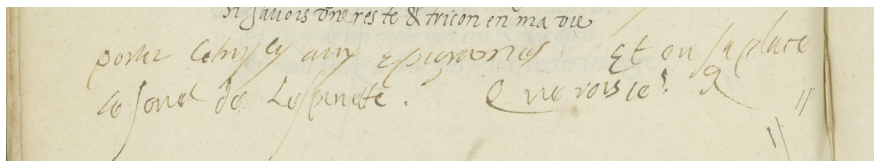 Si j'avois une reste & tricon en ma vie
porter cetuy cy aux epigrames Et en sa place
le sonet de Lespinette. Que vois ie?